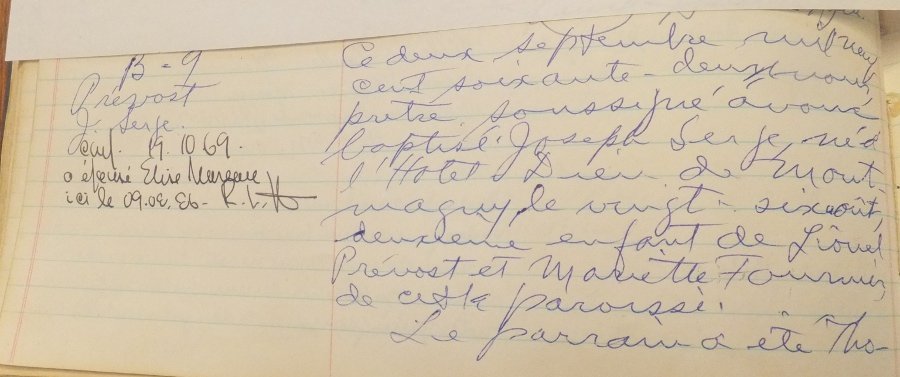 B-9
Prévost
J. Serge.
Conf. 19.10.69.
a épousé Elise Marceau
ici le 09.08.86-
Ce deux septembre mil neuf
cent soixante-deux nous,
prêtre soussigné, avons
baptisé Joseph Serge, né à
l'Hôtel Dieu de Mont-
magny, le vingt-six août,
deuxième enfant de Lionel
Prévost et Mariette Fournier,
de cette paroisse.
Le parrain a été Tho-